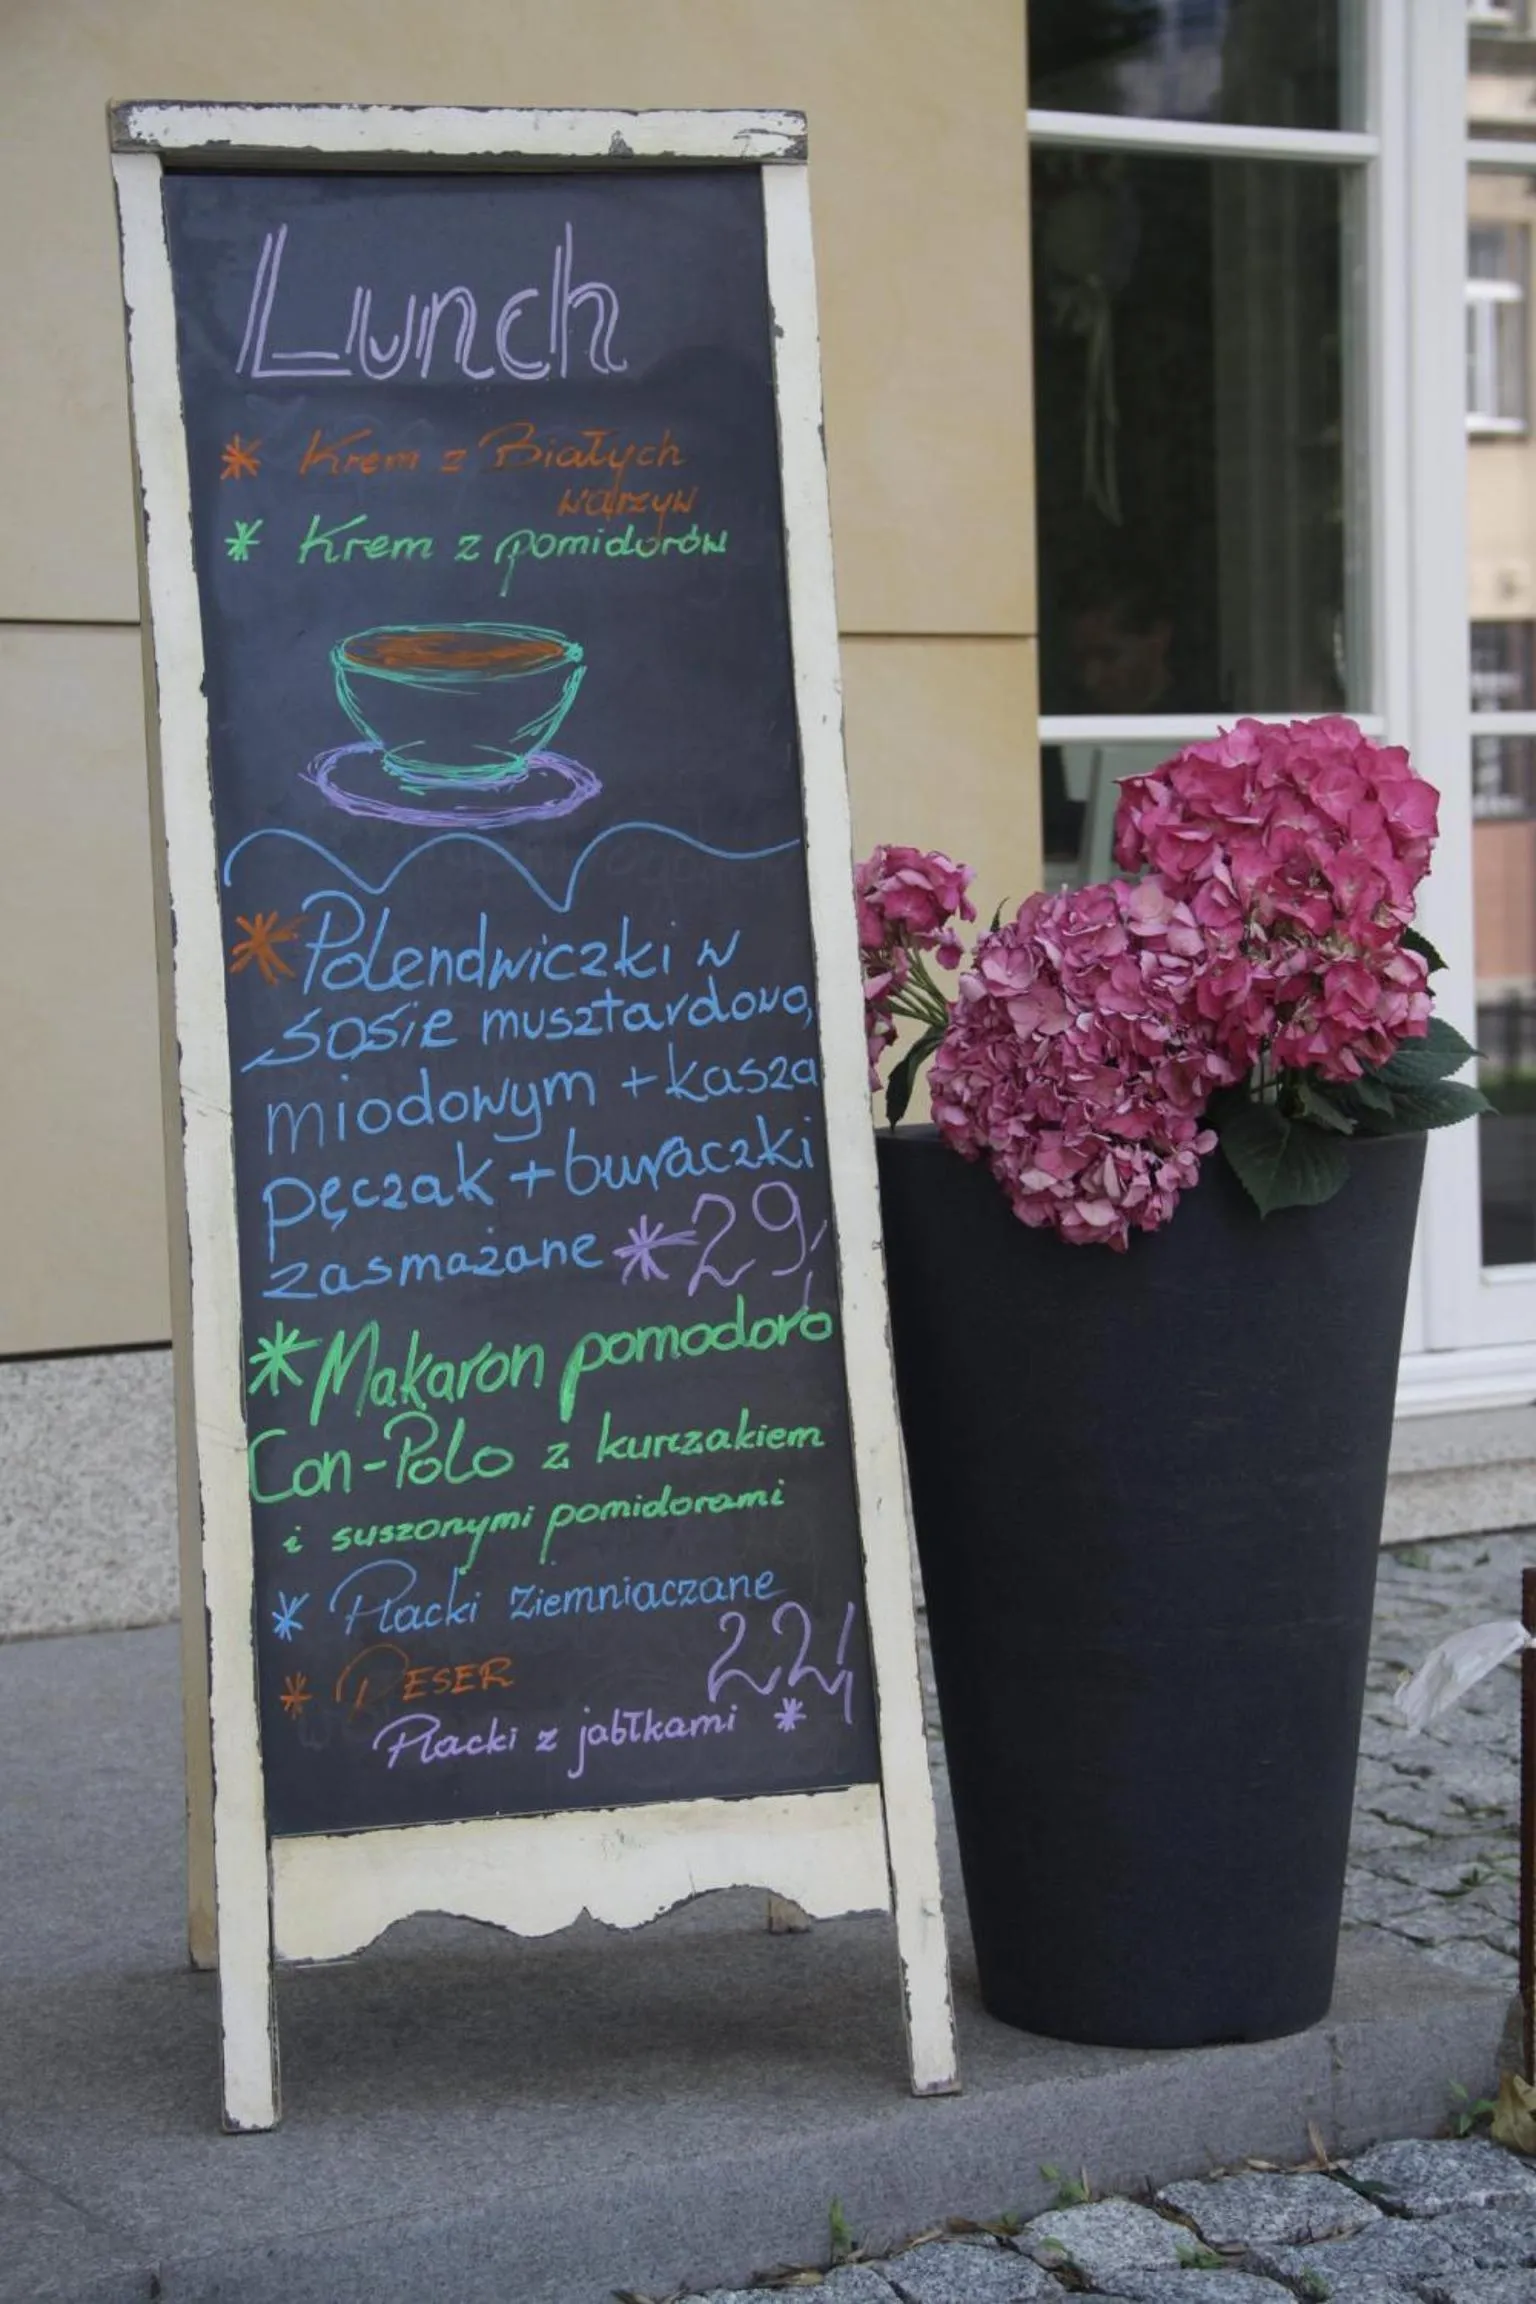 Lunch
* Krem z Białych
warzyw
* Krem z pomidorów
* Polendwiczki w
sosie musztardowo,
miodowym + kasza
pęczak + buraczki
zasmażane * 29,
* Makaron pomodoro
Con-Polo z kurzakiem
i suszonymi pomidorami
* Placki ziemniaczane
22,
* DESER
Placki z jabłkami *